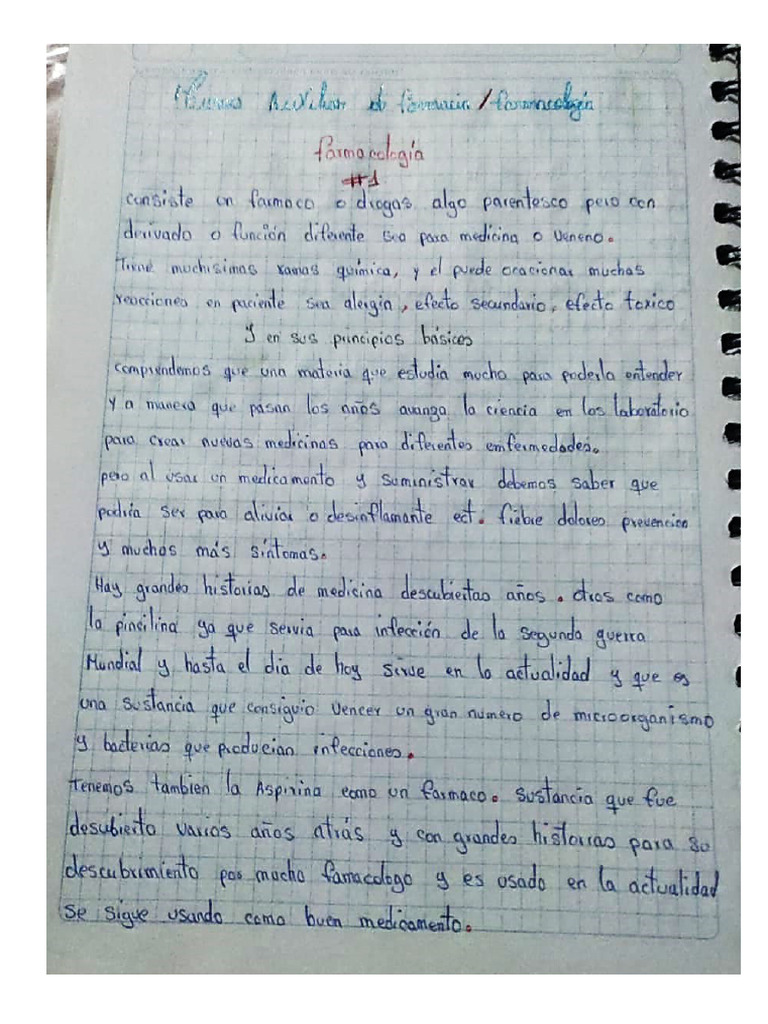 Auxiliar de farmacia / farmacología
farmacología
#1
consiste un farmaco o drogas algo parentesco pero con
derivado o función diferente sea para medicina o veneno.
Tiene muchisimas ramas química, y el puede ocacionar muchas
reacciones en paciente sea alergia, efecto secundario, efecto toxico
y en sus principios básicos
comprendemos que una materia que estudia mucho para poderla entender
y a manera que pasan los años avanga la ciencia en los laboratorio
para crear nuevas medicinas para diferentes enfermedades.
pero al usar un medicamento y suministrar debemos saber que
podria ser para aliviar o desinflamante ect. fiebre dolores prevencion
y muchos más síntomas.
Hay grandes historias de medicina descubiertas años. otros como
la pincilina ya que servia para infección de la segunda guerra
Mundial y hasta el dia de hoy sirve en la actualidad y que es
una sustancia que consiguio vencer un gran numero de microorganismo
y bacterias que producian infecciones.
Tenemos tambien la Aspirina como un farmaco. sustancia que fue
descubierto varios años atrás y con grandes historias para su
descubrimiento por mucho famacologo y es usado en la actualidad
se sigue usando como buen medicamento.